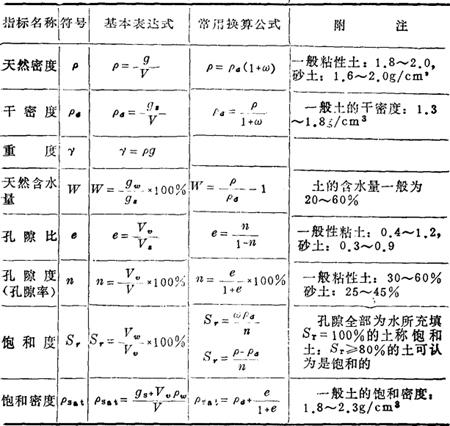 指标名称 符号 基本表达式 常用换算公式 附 注
天然密度 ρ ρ=g/V ρ=ρd(1+ω) 一般粘性土：1.8～2.0，
砂土：1.6～2.0g/cm³
干密度 ρd ρd=gs/V ρd=ρ/(1+ω) 一般土的干密度：1.3
～1.8g/cm³
重 度 γ γ=ρg
天然含水量 W W=gw/gs×100% W=ρ/ρd-1 土的含水量一般为
20～60%
孔隙比 e e=Vv/Vs e=n/(1-n) 一般性粘土：0.4～1.2，
砂土：0.3～0.9
孔隙度 n n=Vv/V×100% n=e/(1+e)×100% 一般粘性土：30～60%
(孔隙率) 砂土：25～45%
饱和度 Sr Sr=Vw/Vv×100% Sr=ωρd/n 孔隙全部为水所充填
Sr=ρ-ρd/n Sr=100%的土称饱和
土；Sr≥80%的土可认
为是饱和的
饱和密度 ρsat ρsat=(gs+Vvρw)/V ρsat=ρd+e/(1+e) 一般土的饱和密度：
1.8～2.3g/cm³